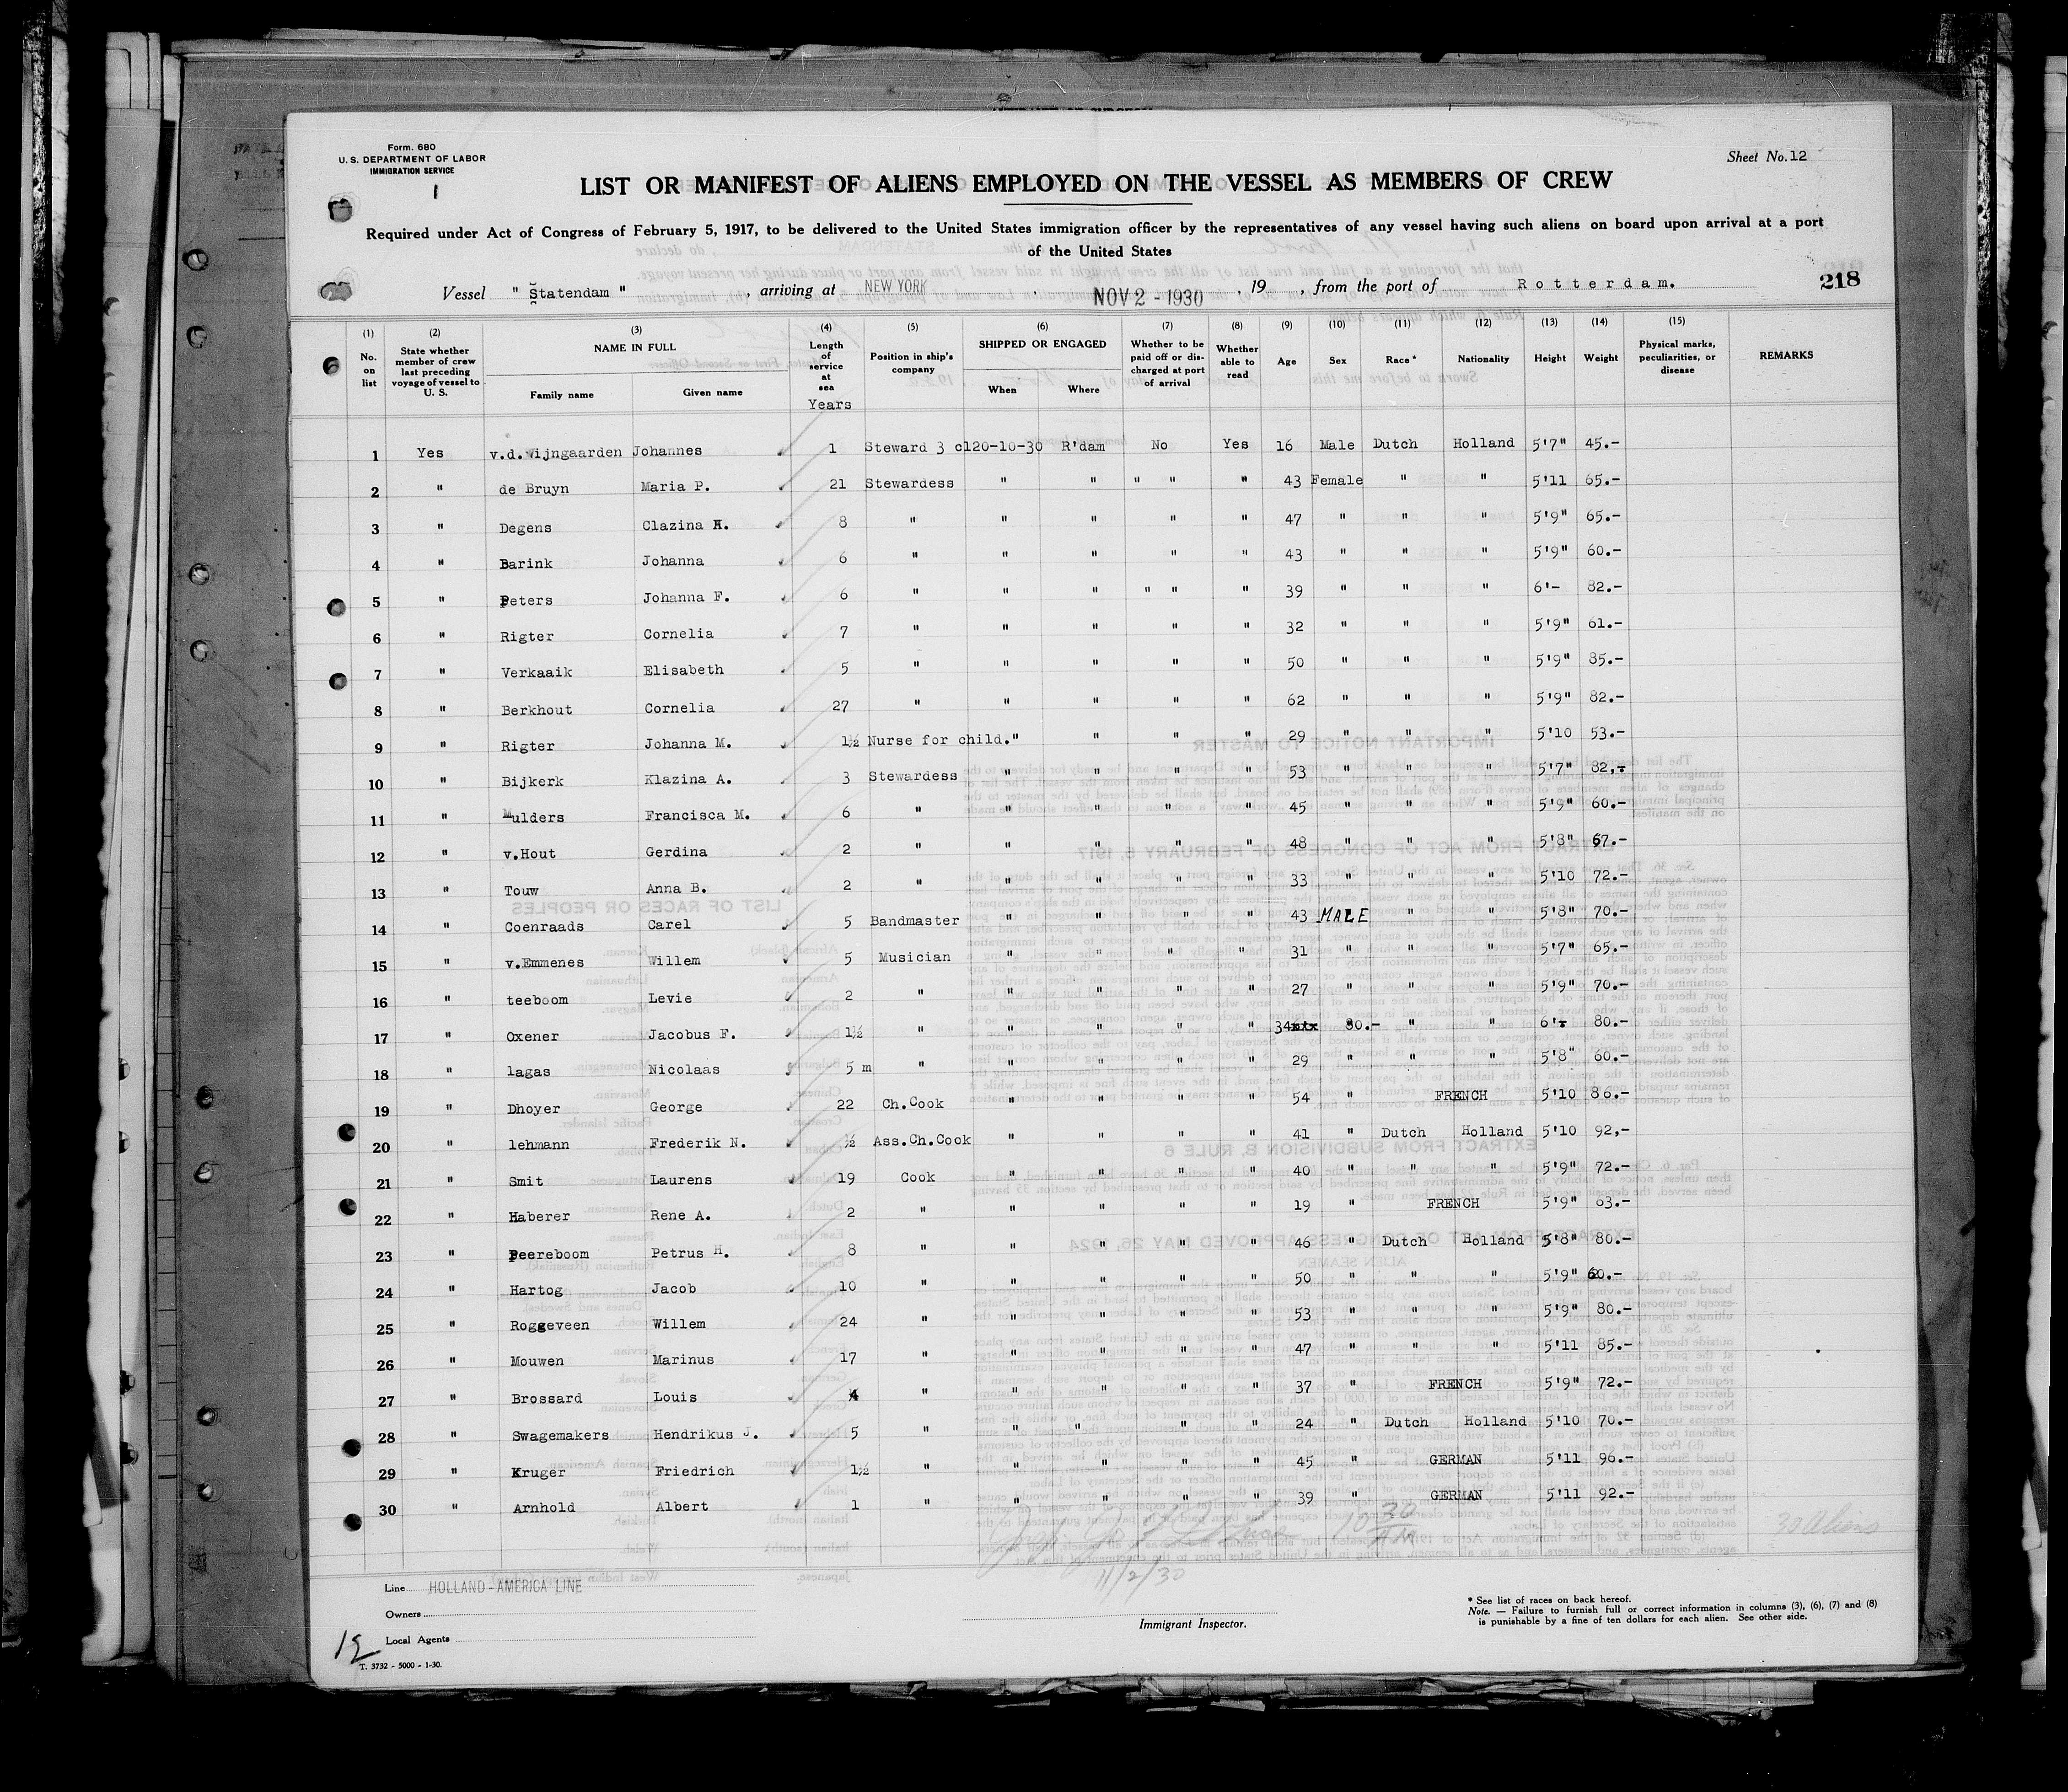 Form. 680
U. S. DEPARTMENT OF LABOR
IMMIGRATION SERVICE
1
Sheet No. 12
LIST OR MANIFEST OF ALIENS EMPLOYED ON THE VESSEL AS MEMBERS OF CREW
Required under Act of Congress of February 5, 1917, to be delivered to the United States immigration officer by the representatives of any vessel having such aliens on board upon arrival at a port
of the United States
Vessel " Statendam " , arriving at NEW YORK , NOV 2 - 1930 , 19 , from the port of Rotterdam. 218
(1) No. on list (2) State whether member of crew last preceding voyage of vessel to U. S. (3) NAME IN FULL Family name Given name (4) Length of service at sea Years (5) Position in ship's company (6) SHIPPED OR ENGAGED When Where (7) Whether to be paid off or discharged at port of arrival (8) Whether able to read (9) Age (10) Sex (11) Race* (12) Nationality (13) Height (14) Weight (15) Physical marks, peculiarities, or disease REMARKS
1 Yes v.d.Wijngaarden Johannes 1 Steward 3 cl 20-10-30 R'dam No Yes 16 Male Dutch Holland 5'7" 45.-
2 " de Bruyn Maria P. 21 Stewardess " " " " " 43 Female " " 5'11 65.-
3 " Degens Clazina H. 8 " " " " " 47 " " " 5'9" 65.-
4 " Barink Johanna 6 " " " " " 43 " " " 5'9" 60.-
5 " Peters Johanna F. 6 " " " " " " 39 " " " 6'- 82.-
6 " Rigter Cornelia 7 " " " " " 32 " " " 5'9" 61.-
7 " Verkaaik Elisabeth 5 " " " " " 50 " " " 5'9" 85.-
8 " Berkhout Cornelia 27 " " " " " 62 " " " 5'9" 82.-
9 " Rigter Johanna M. 1½ Nurse for child. " " " " 29 " " " 5'10 53.-
10 " Bijkerk Klazina A. 3 Stewardess " " " " 53 " " " 5'7" 82,-
11 " Mulders Francisca M. 6 " " " " " 45 " " " 5'9" 60.-
12 " v.Hout Gerdina 2 " " " " " 48 " " " 5'8" 67.-
13 " Touw Anna B. 2 " " " " " 33 " " " 5'10 72.-
14 " Coenraads Carel 5 Bandmaster " " " " 43 MALE " " 5'8" 70.-
15 " v.Emmenes Willem 5 Musician " " " " 31 " " " 5'7" 65.-
16 " teeboom Levie 2 " " " " " 27 " " " 5'9" 70.-
17 " Oxener Jacobus F. 1½ " " " " " 34xtx 80.- " " 6'- 80.-
18 " lagas Nicolaas 5 m " " " " " 29 " " " 5'8" 60.-
19 " Dhoyer George 22 Ch.Cook " " " " 54 " FRENCH 5'10 86.-
20 " lehmann Frederik N. ½ Ass.Ch.Cook " " " " 41 " Dutch Holland 5'10 92,-
21 " Smit Laurens 19 Cook " " " " 40 " " " 5'9" 72.-
22 " Haberer Rene A. 2 " " " " " 19 " FRENCH 5'9" 63.-
23 " Peereboom Petrus H. 8 " " " " " 46 " Dutch Holland 5'8" 80.-
24 " Hartog Jacob 10 " " " " " 50 " " " 5'9" 60.-
25 " Roggeveen Willem 24 " " " " " 53 " " " 5'9" 80.-
26 " Mouwen Marinus 17 " " " " " 47 " " " 5'11 85.-
27 " Brossard Louis 4 " " " " " 37 " FRENCH 5'9" 72.-
28 " Swagemakers Hendrikus J. 5 " " " " " 24 " Dutch Holland 5'10 70.-
29 " Kruger Friedrich 1½ " " " " " 45 " GERMAN 5'11 96.-
30 " Arnhold Albert 1 " " " " " 39 " GERMAN 5'11 92.-
10 30 AM
30 Aliens
11/2/30
Line HOLLAND-AMERICA LINE
Owners
Local Agents
Immigrant Inspector.
* See list of races on back hereof.
Note. — Failure to furnish full or correct information in columns (3), (6), (7) and (8)
is punishable by a fine of ten dollars for each alien. See other side.
12
T. 3732 - 5000 - 1-30.